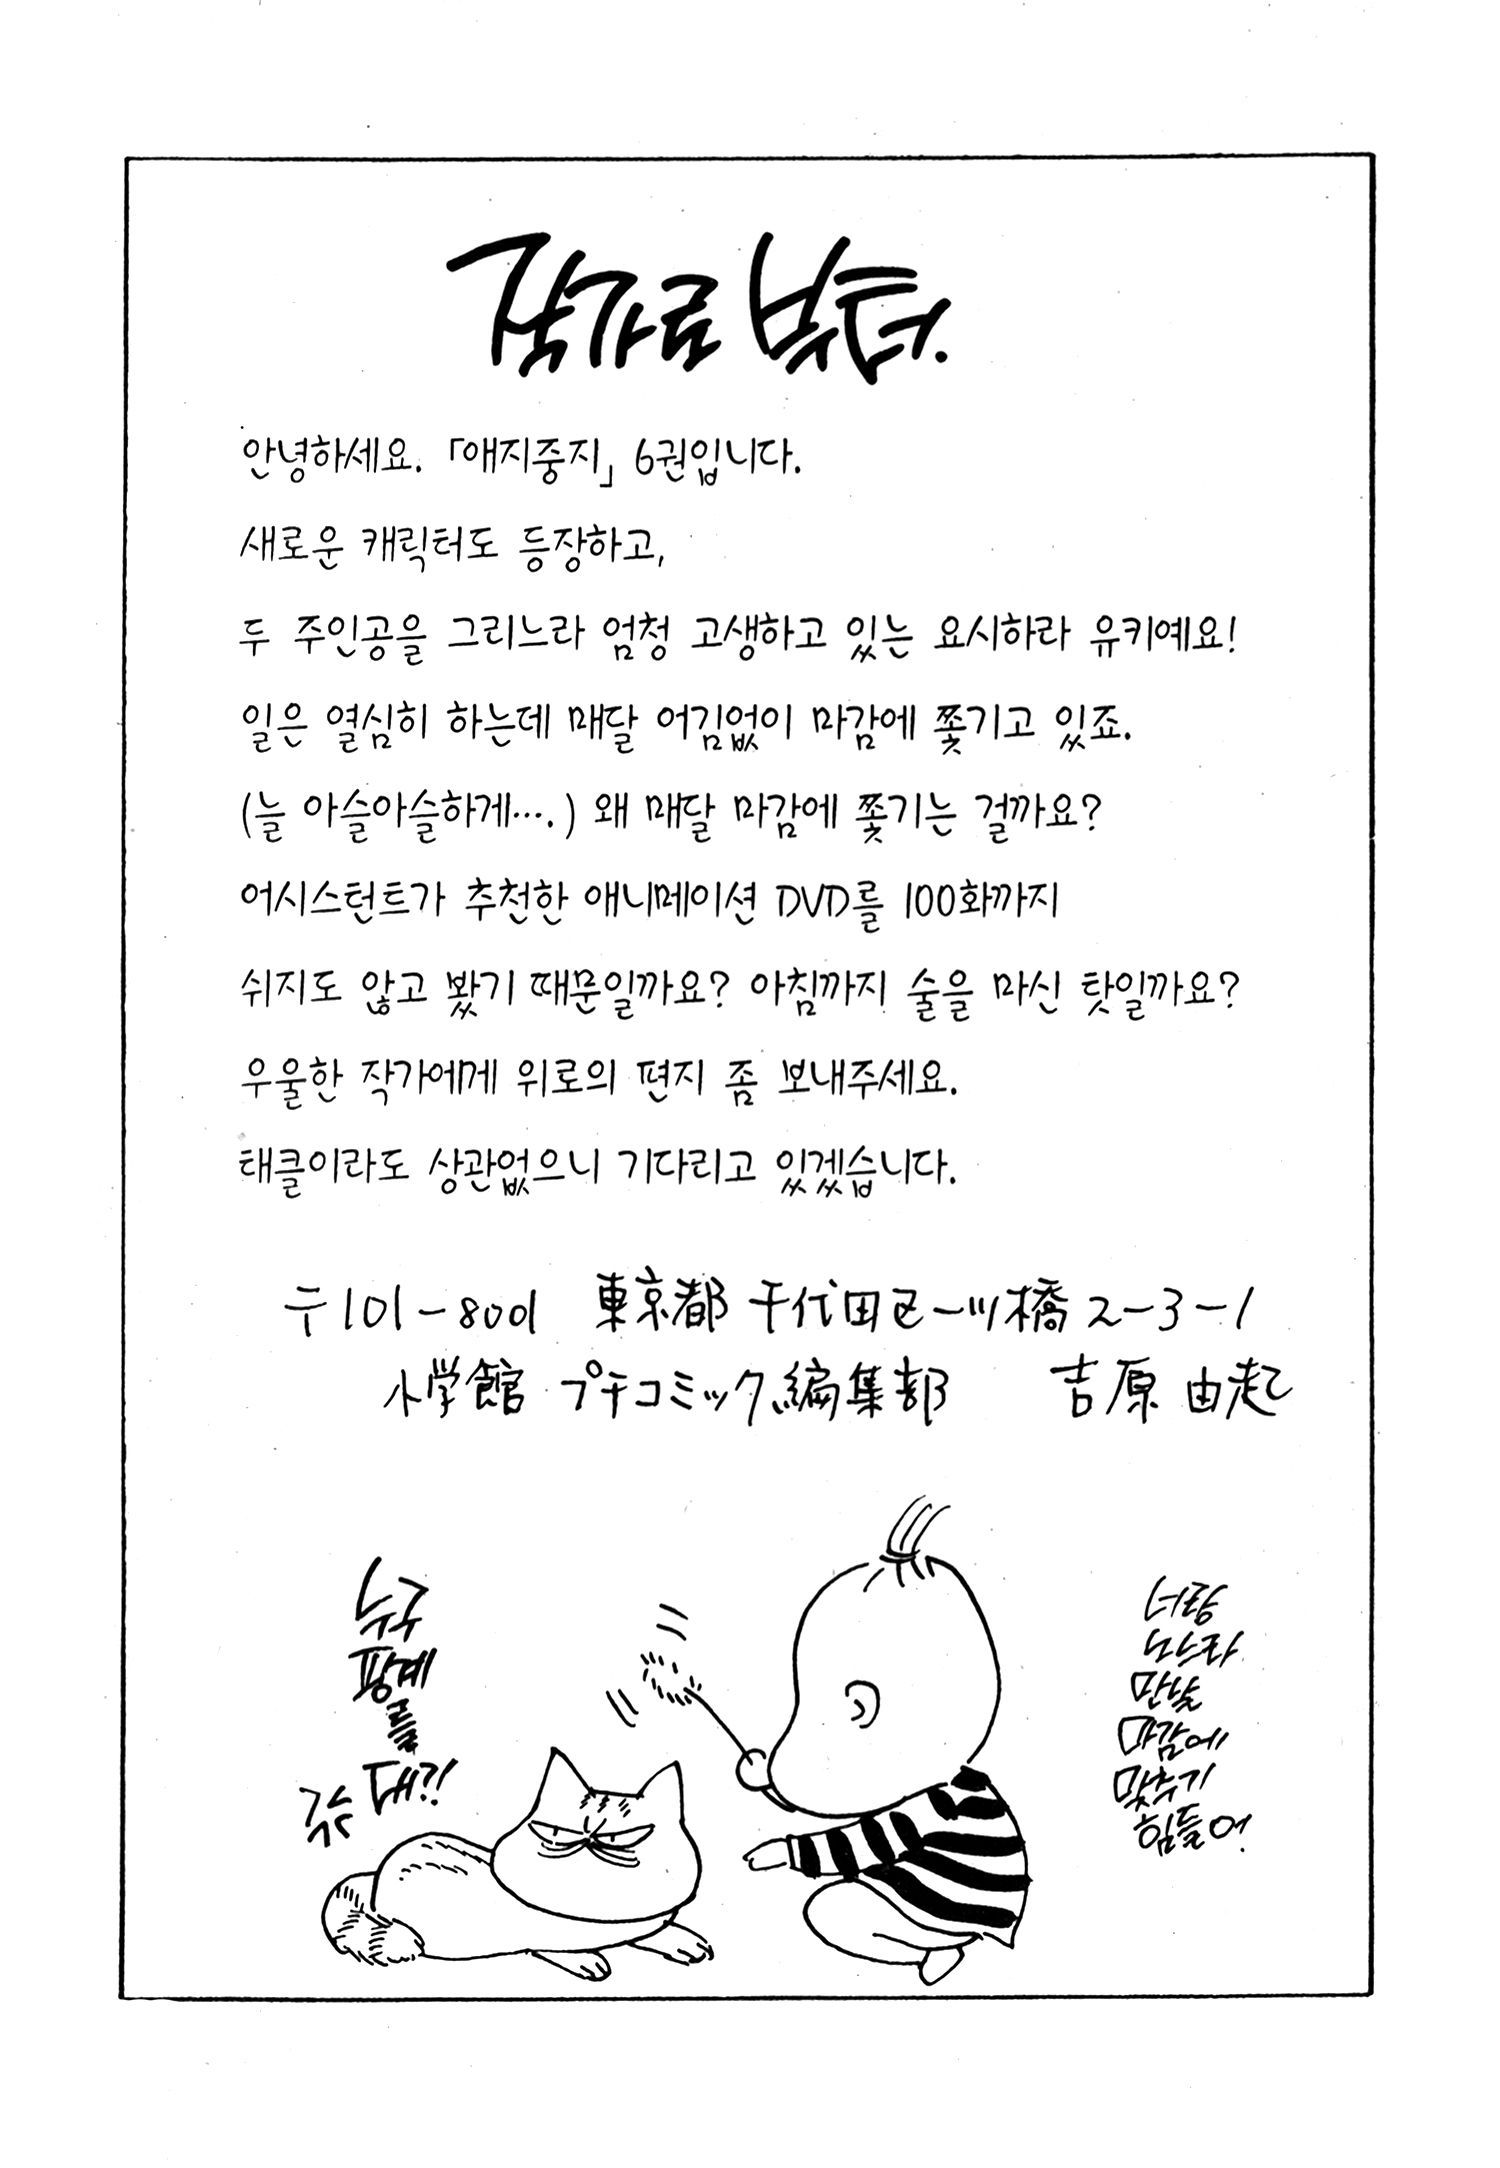 작가로부터.
안녕하세요. 「애지중지」 6권입니다.
새로운 캐릭터도 등장하고,
두 주인공을 그리느라 엄청 고생하고 있는 요시하라 유키예요!
일은 열심히 하는데 매달 어김없이 마감에 쫓기고 있죠.
(늘 아슬아슬하게….) 왜 매달 마감에 쫓기는 걸까요?
어시스턴트가 추천한 애니메이션 DVD를 100화까지
쉬지도 않고 봤기 때문일까요? 아침까지 술을 마신 탓일까요?
우울한 작가에게 위로의 편지 좀 보내주세요.
태클이라도 상관없으니 기다리고 있겠습니다.
〒101-8001 東京都 千代田区一ツ橋2-3-1
小学館 プチコミック編集部 吉原 由起
너랑
노느라
만날
마감에
맞추기
힘들어.
누구
핑계
를
대?!